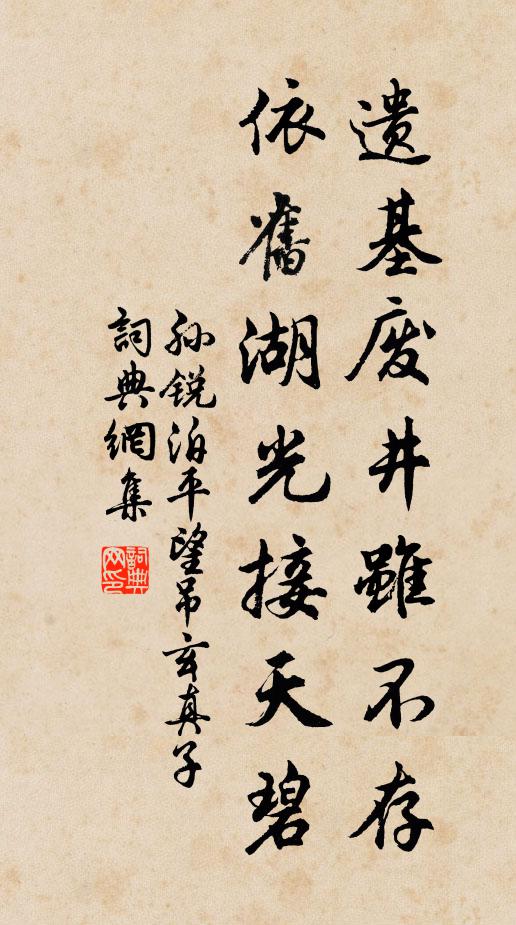 遗基废井虽不存
依舊湖光接天碧
孙锐泊平望吊玄真子
詞典網集
詞典网印